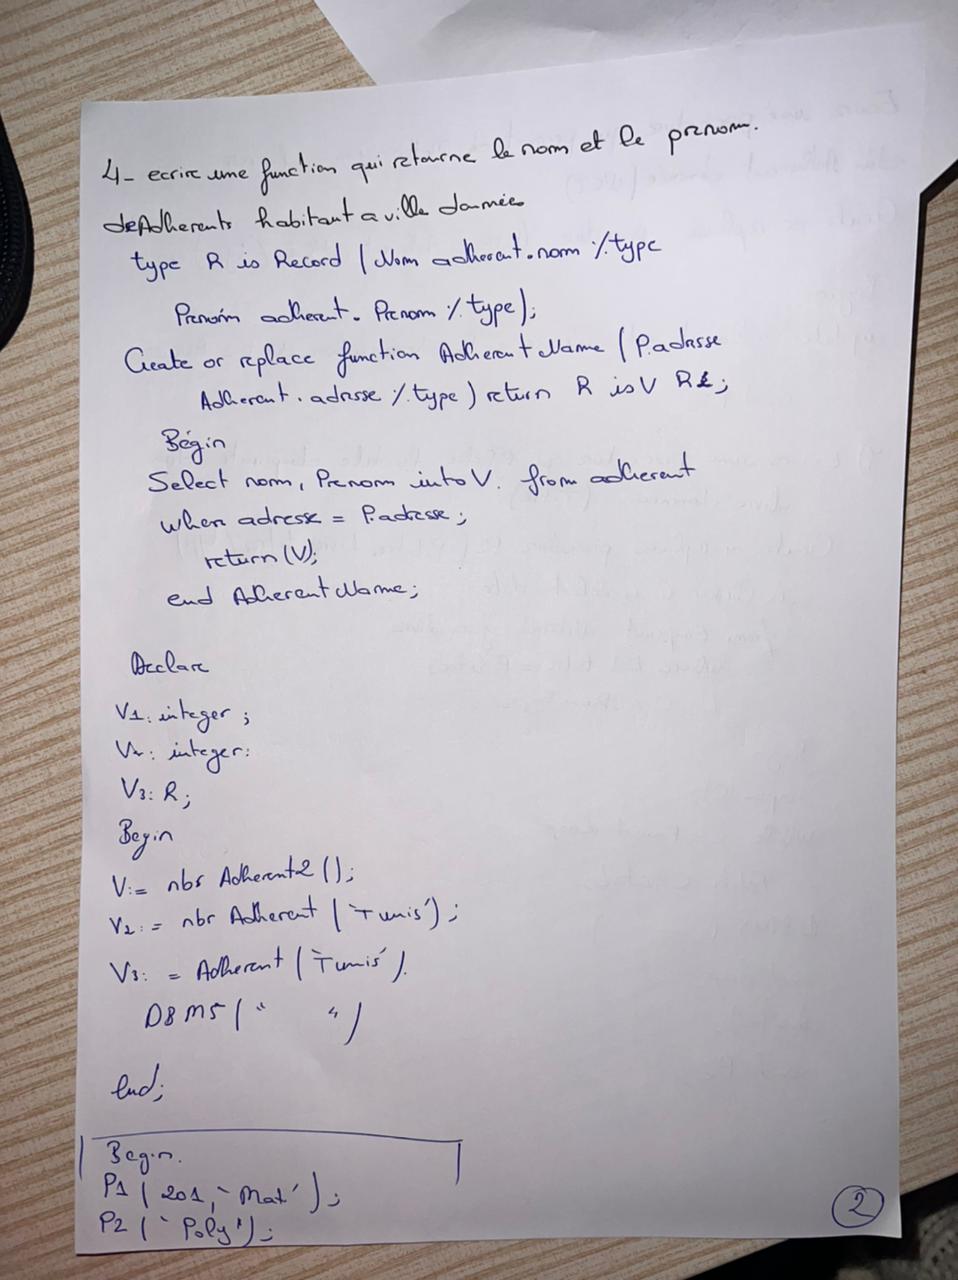 4- ecrire une function qui retourne le nom et le prenom.
de Adherents habitant a ville donnée
type R is Record (Nom adherent.nom %type
Prenom adherent. Prenom % type);
Create or replace function Adherent Name ( P.adresse
Adherent. adresse % type ) return R is V R;
Begin
Select nom, Prenom into V. from adherent
when adresse = P.adresse ;
return (V);
end Adherent Name;
Declare
V1: integer ;
V2: integer:
V3: R;
Begin
V:= nbr Adherent2 ();
V2: = nbr Adherent ( 'Tunis' ) ;
V3: = Adherent ( 'Tunis' ).
DBMS ( " " )
end;
Begin.
P1 ( 201, 'Mat' ) ;
P2 ( 'Poly' ) ;
2